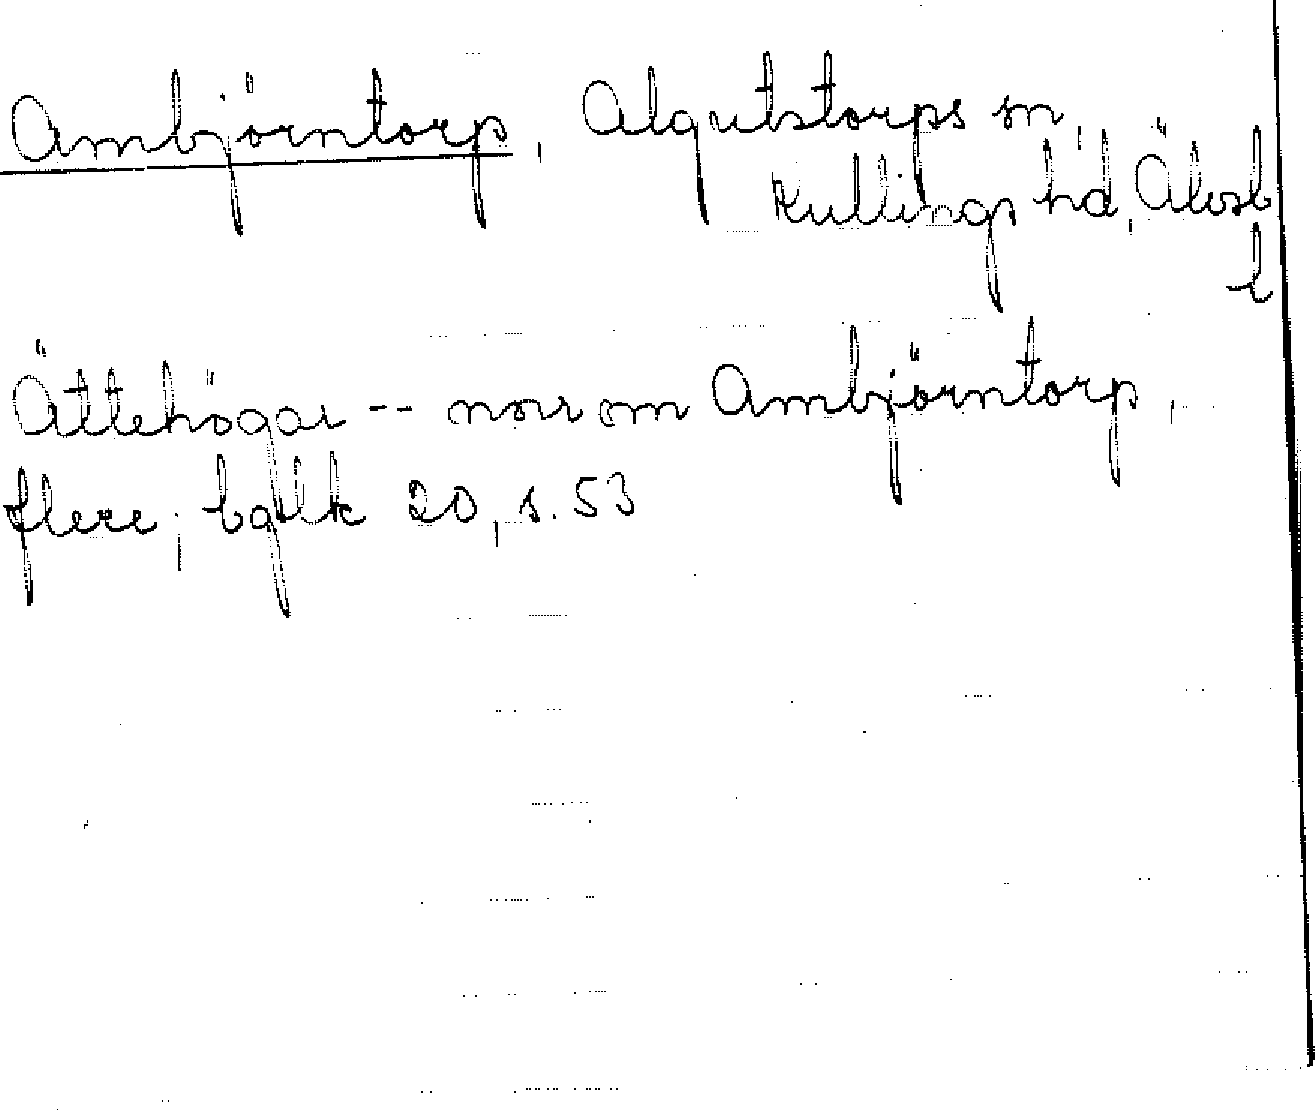 Ambjörntorp, Algutstorps sn,
Kullings hd, Älvsb
l
Ättehögar -- norr om Ambjörntorp,
flere; bglk 20, s. 53